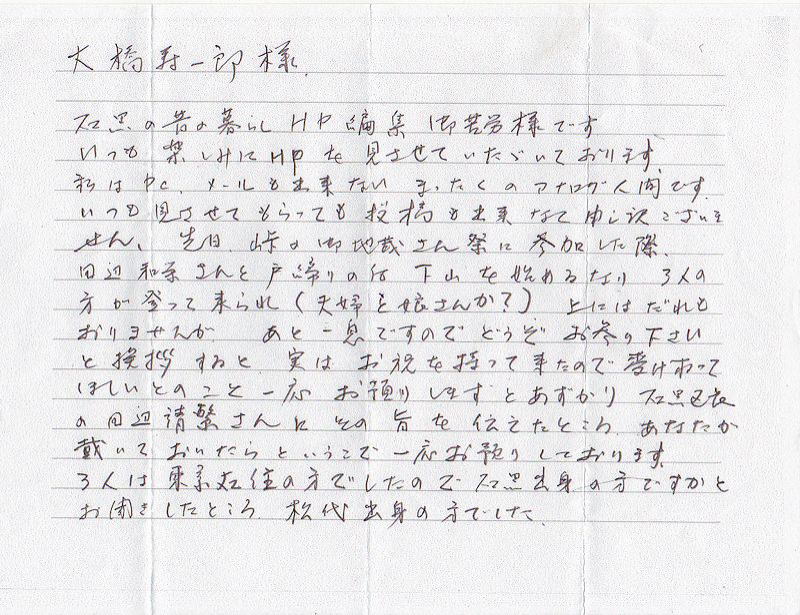 大橋寿一郎様
石黒の昔の暮らしHP編集御苦労様です
いつも楽しみにHPを見させていただいております。
私はPC、メールも出来ないまったくのアナログ人間です。
いつも見させてもらっても投稿も出来なくて申し訳ございま
せん、先日、峠の御地蔵さん祭に参加した際、
田辺和栄さんと戸締りの後下山を始めるなり3人の
方が登って来られ(夫婦と娘さんか?)上にはだれも
おりませんが あと一息ですのでどうぞお参り下さい
と挨拶すると、実はお祝を持って来たので受け取って
ほしいとのこと一応お預りしますとあずかり 石黒区長
の田辺請繁さんにその旨を伝えたところ、あなたが
戴いておいたらということで一応お預りしております。
3人は東京在住の方でしたので石黒出身の方ですかと
お聞きしたところ、松代出身の方でした。